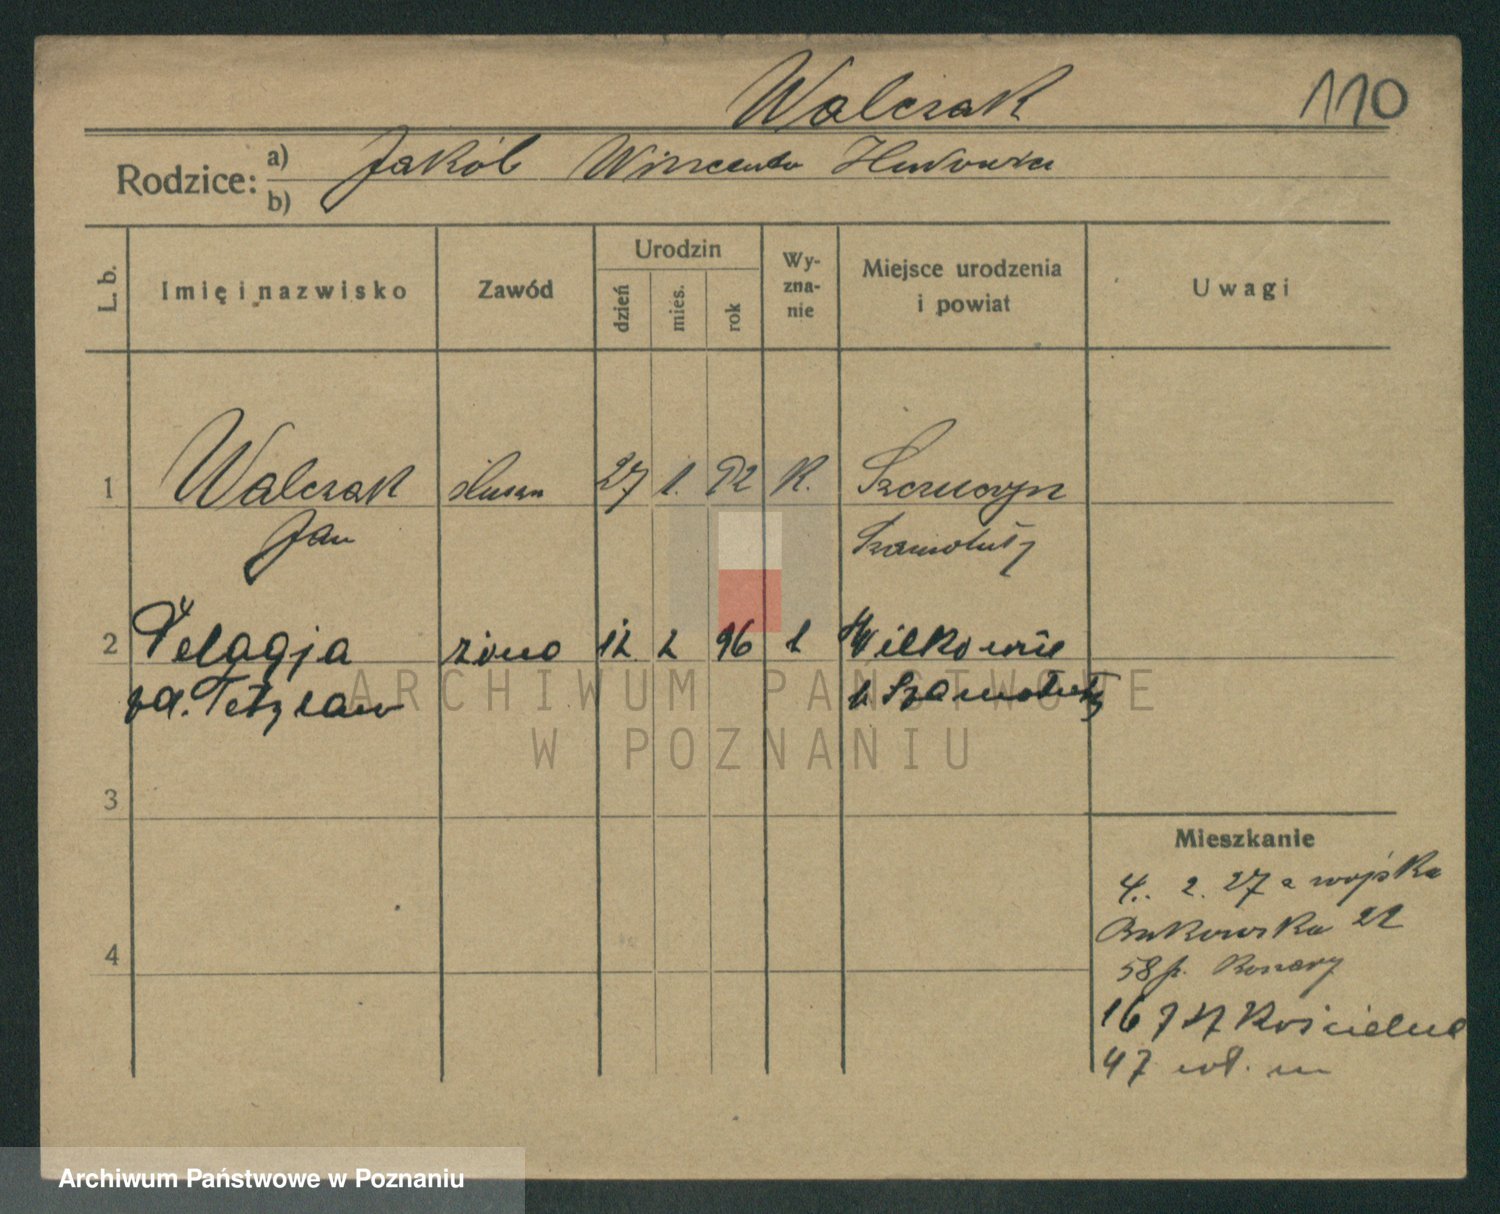 Walczak
110
Rodzice: a) Jakób Wincenta
b)
L. b.
Imię i nazwisko
Zawód
Urodzin
dzień
mies.
rok
Wy-
zna-
nie
Miejsce urodzenia
i powiat
Uwagi
1 Walczak ślusarz 27 1. 92 K. Szczuczyn
Jan Szamotuły
2 Pelagja żona 12 2 96 Wilkowie
zd. Tetzlaw p. Szamotuły
3
Mieszkanie
4. 2. 27 z wojska
Bukowska 22
58 p.
4
16 7 27 Kościelna
47 wł. m
ARCHIWUM PAŃSTWOWE
W POZNANIU
Archiwum Państwowe w Poznaniu